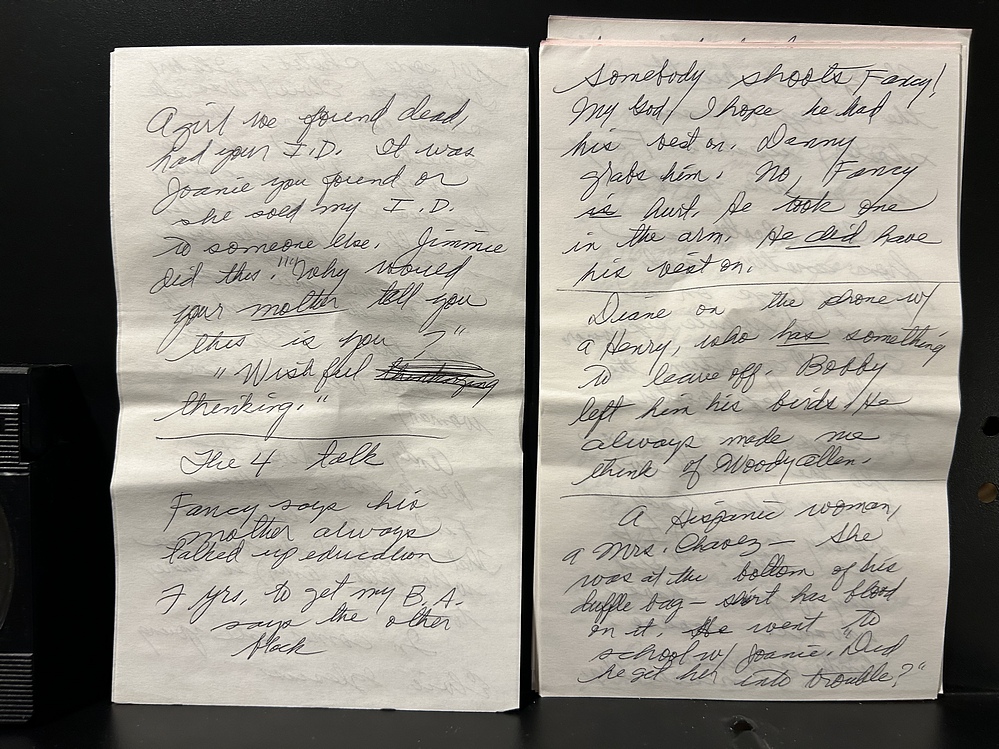 A girl we found dead,
had your I.D. It was
Joanie you found or
she sold my I.D.
to someone else. Jimmie
did this." "Why would
your mother tell you
this is you?"
"Wishful
thinking."
The 4 talk
Fancy says his
mother always
talked up education
7 yrs. to get my B.A.
says the other
black
Somebody shoots Fancy!
My God, I hope he had
his vest on. Danny
grabs him. No, Fancy
is hurt. He took one
in the arm. He did have
his vest on.
Diane on the phone w/
a Henry, who has something
to leave off. Bobby
left him his birds. He
always made me
think of Woody Allen.
A Hispanic woman,
a Mrs. Chavez – She
was at the bottom of his
duffle bag – shirt has blood
on it. He went to
school w/ Joanie. "Did
he get her into trouble?"